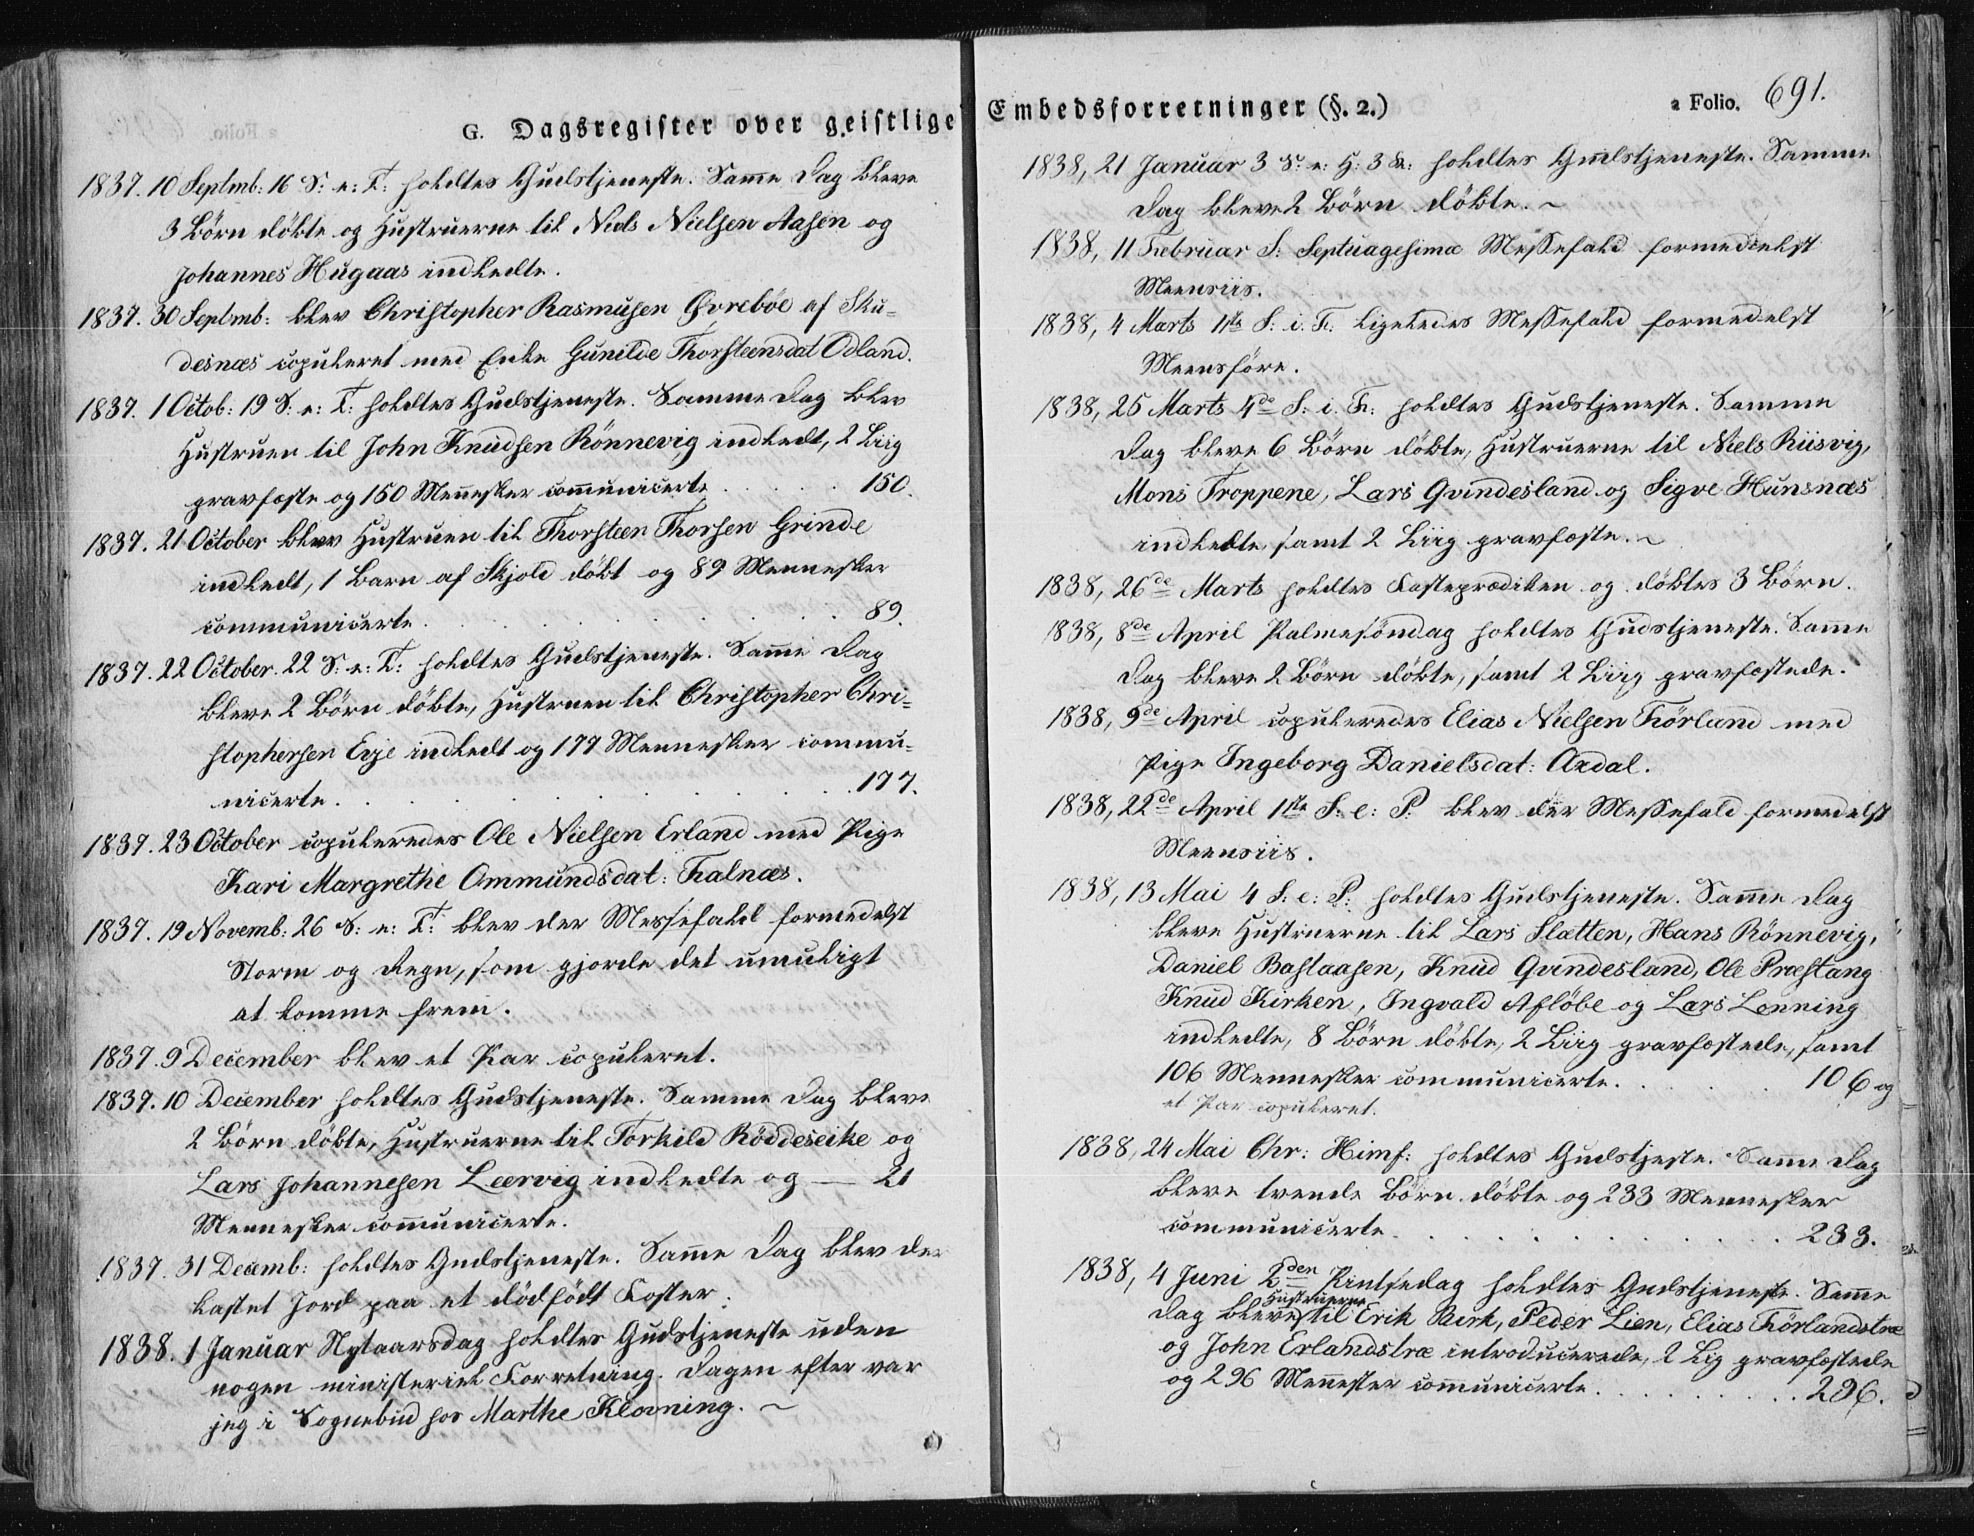 G. Dagsregister over geistlige Embedsforretninger (§. 2.)
a Folio. 691.
1837. 10 Septmb: 16 S: e: T: holdtes Gudstjeneste. Samme Dag bleve
3 Börn döbte og Hustruerne til Niels Nielsen Aasen og
Johannes Hugaas indledte.
1837. 30 Septmb: blev Christopher Rasmusen Øvreböe af Sku-
desnæs copuleret med Enke Gunilde Thorsteensdat Odland.
1837. 1 Octob: 19 S: e: T: holdtes Gudstjeneste. Samme Dag blev
Hustruen til John Knudsen Rönnevig indledt, 2 Liig
gravfæste og 150 Mennesker communicerte . . . . . 150.
1837. 21 October blev Hustruen til Thorsteen Thorsen Grinde
indledt, 1 Barn af Skjold döbt og 89 Mennesker
communicerte . . . . . . . . 89.
1837. 22 October. 22 S: e: T: holdtes Gudstjeneste. Samme Dag
bleve 2 Börn döbte, Hustruen til Christopher Chri-
stophersen Erje indledt og 177 Mennesker commu-
nicerte . . . . . . . . . 177.
1837. 23 October copuleredes Ole Nielsen Erland med Pige
Kari Margrethe Ommundsdat: Falnæs.
1837. 19 Novemb: 26 S: e: T: blev der Messefald formedelst
Storm og Regn, som gjorde det umuligt
at komme frem.
1837. 9 December blev et Par copuleret.
1837. 10 December holdtes Gudstjeneste. Samme Dag bleve
2 Börn döbte, Hustruerne til Torkild Röddeseike og
Lars Johannesen Leervig indledte og — 21
Mennesker communicerte.
1837. 31 Decemb: holdtes Gudstjeneste. Samme Dag blev der
kastet Jord paa et dödfödt Foster.
1838. 1 Januar Nytaarsdag holdtes Gudstjeneste uden
nogen ministeriel Forretning. Dagen efter var
jeg i Sognebud hos Marthe Klovning. ~
1838, 21 Januar 3 S. e: H: 3 K: holdtes Gudstjeneste. Samme
Dag bleve 2 Börn döbte. ~
1838, 11 Februar S: Septuagesimæ Messefald formedelst
Meensiis.
1838, 4 Marts 1ste S: i. F: ligeledes Messefald formedelst
Meensföre.
1838, 25 Marts 4de S: i. F: holdtes Gudstjeneste. Samme
Dag bleve 6 Börn döbte, Hustruerne til Niels Riisvig,
Mons Troppene, Lars Qvindesland og Sigve Hunsnæs
indledte, samt 2 Liig gravfæste. ~
1838, 26de Marts holdtes Fasteprædiken og döbtes 3 Börn.
1838, 8de April Palmesöndag holdtes Gudstjeneste. Samme
Dag bleve 2 Börn döbte, samt 2 Liig gravfæstede.
1838, 9de April copuleredes Elias Nielsen Förland med
Pige Ingeborg Danielsdat: Axdal.
1838, 22de April 1ste S: e: P. blev der Messefald formedelst
Meensiis.
1838, 13 Mai 4 S: e: P: holdtes Gudstjeneste. Samme Dag
bleve Hustruerne til Lars Slætten, Hans Rönnevig,
Daniel Bastaasen, Knud Qvindesland, Ole Præstang
Knud Kirken, Ingvald Aflöbe og Lars Lønning
indledte, 8 Börn döbte, 2 Liig gravfæstede, samt
106 Mennesker communicerte. . . . . . 106 og
et Par copuleret.
1838, 24 Mai Chr: Himf: holdtes Gudstjeste. Samme Dag
bleve tvende Börn döbte og 233 Mennesker
communicerte . . . . . . . . . 233.
1838, 4 Juni 2den Pintsedag holdtes Gudstjeneste. Samme
Hustruerne
Dag bleve til Erik Birk, Peder Lien, Elias Förlandstræ
og John Erlandstræ introducerede, 2 Lig gravfæstede
og 296 Mennesker communicerte . . . . . . . 296.